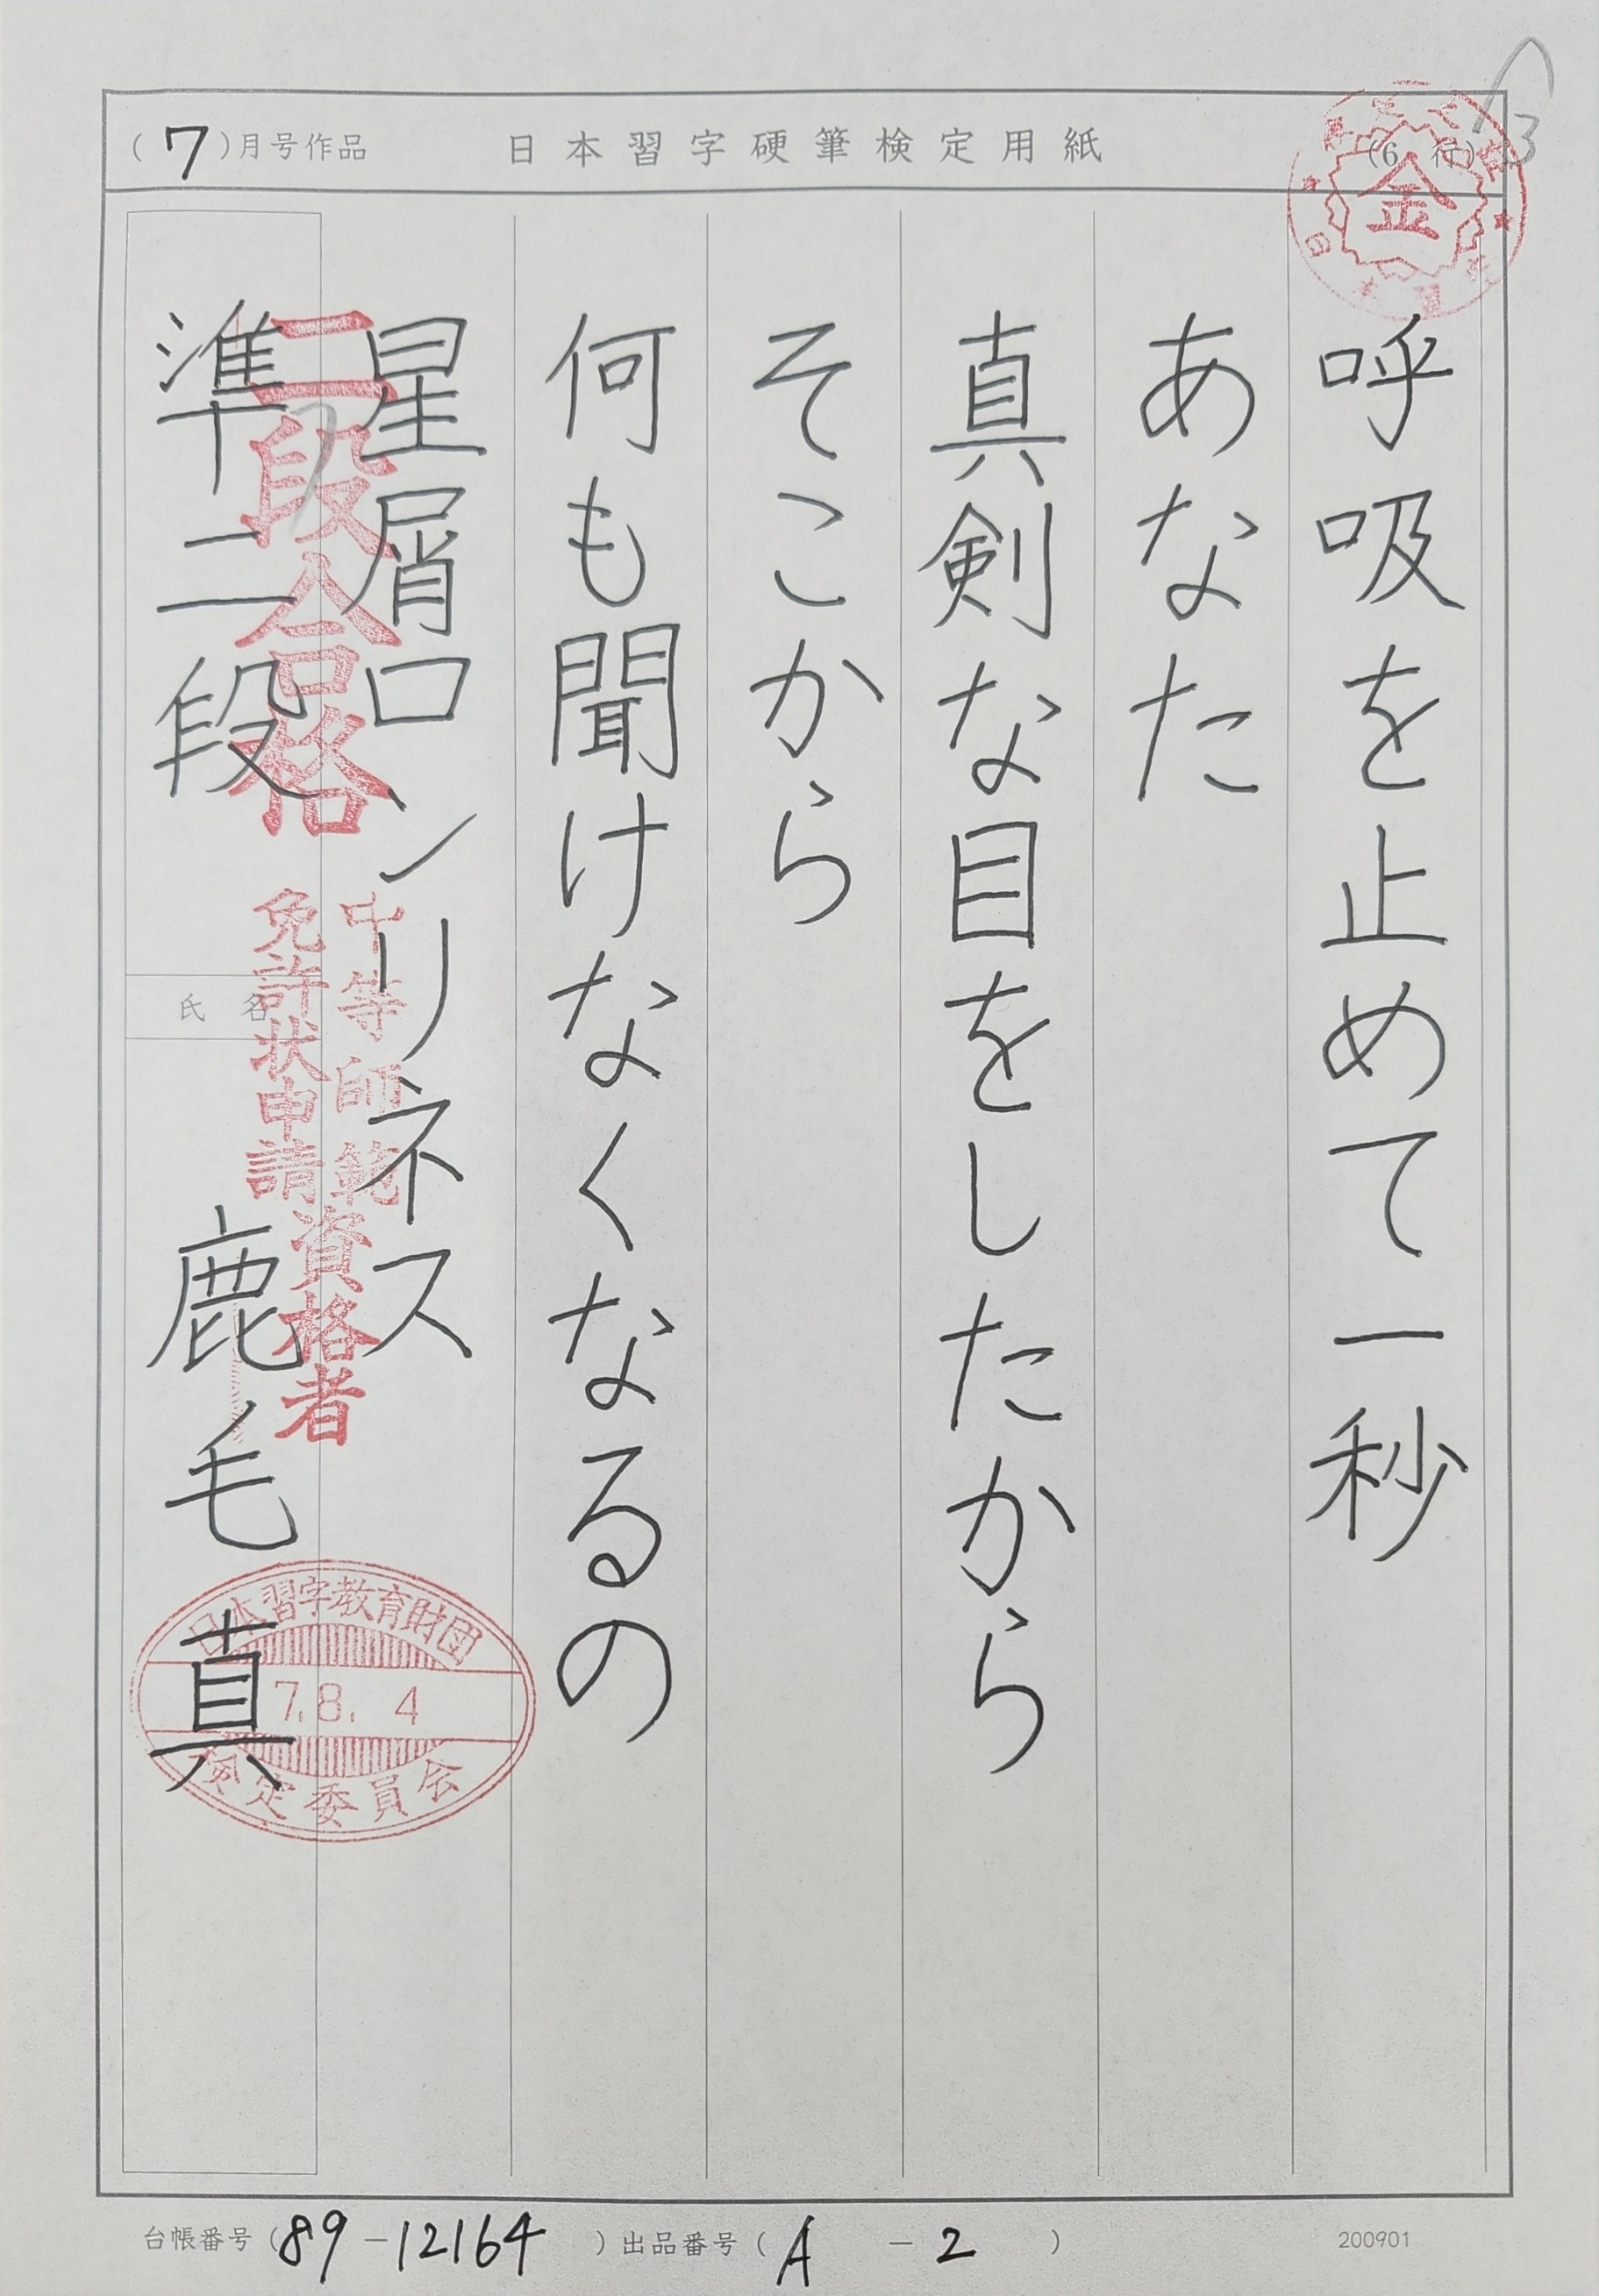 (7)月号作品 日本習字硬筆検定用紙 (6 行)
金
呼吸を止めて一秒
あなた
真剣な目をしたから
そこから
何も聞けなくなるの
星屑ロンリネス
準二段 鹿毛真
二段合格
中等師範
免許状申請
資格者
氏名
日本習字教育財団
7.8.4
検定委員会
台帳番号(89-12164)出品番号(A-2)
200901